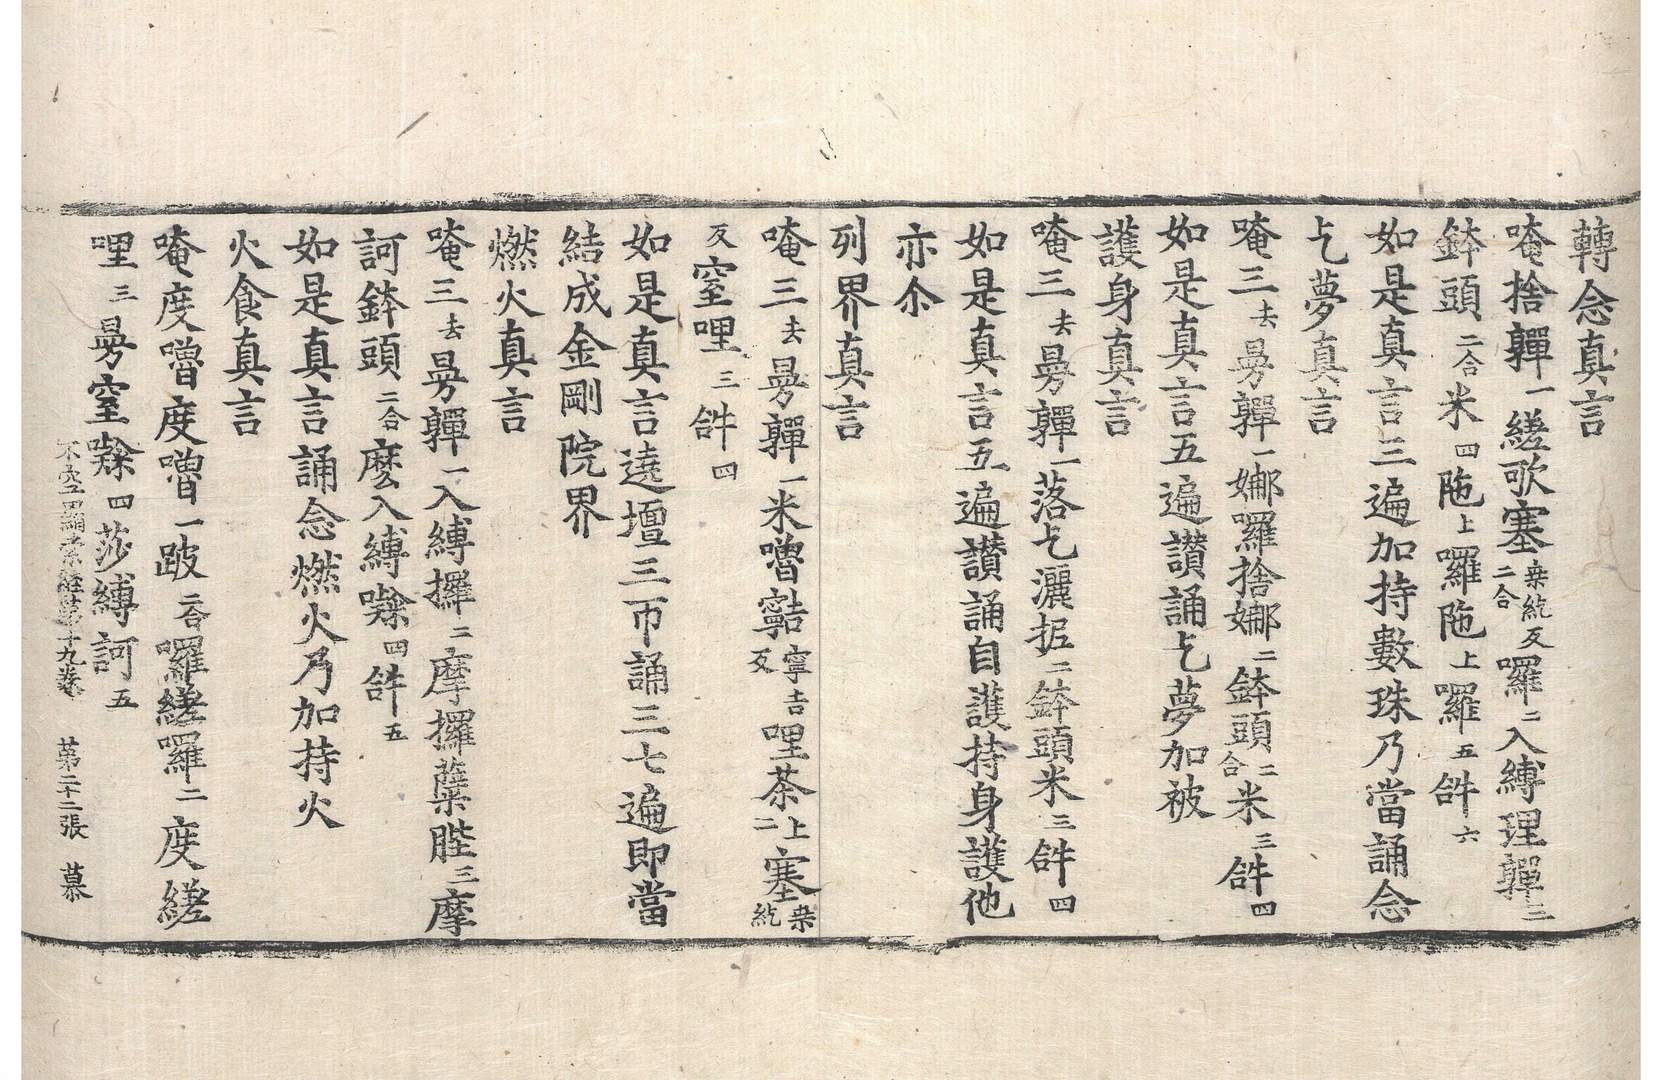 轉念真言
唵捨鄲一縒歌塞桒紇反二合囉二入縛理鄲三
鉢頭二合米四陁上囉陁上囉五𤙖六
如是真言三遍加持數珠乃當誦念
乞夢真言
唵三去㬅鄲一娜囉捨娜二鉢頭二合米三𤙖四
如是真言五遍讚誦乞夢加被
護身真言
唵三去㬅鄲一落乞灑抳二鉢頭米三𤙖四
如是真言五遍讚誦自護持身護他
亦尒
列界真言
唵三去㬅鄲一米嚕寧吉反哩茶上二塞桒紇
反窒哩三𤙖四
如是真言遶壇三帀誦三七遍即當
結成金剛院界
燃火真言
唵三去㬅鄲一入縛攞二摩攞蘗陛三摩
訶鉢頭二合麽入縛㘑四𤙖五
如是真言誦念燃火乃加持火
火食真言
唵度嚕度嚕一跛二合囉縒囉二度縒
哩三㬅窒㘑四莎縛訶五
不空羂索經第十九卷 第二十二張 慕